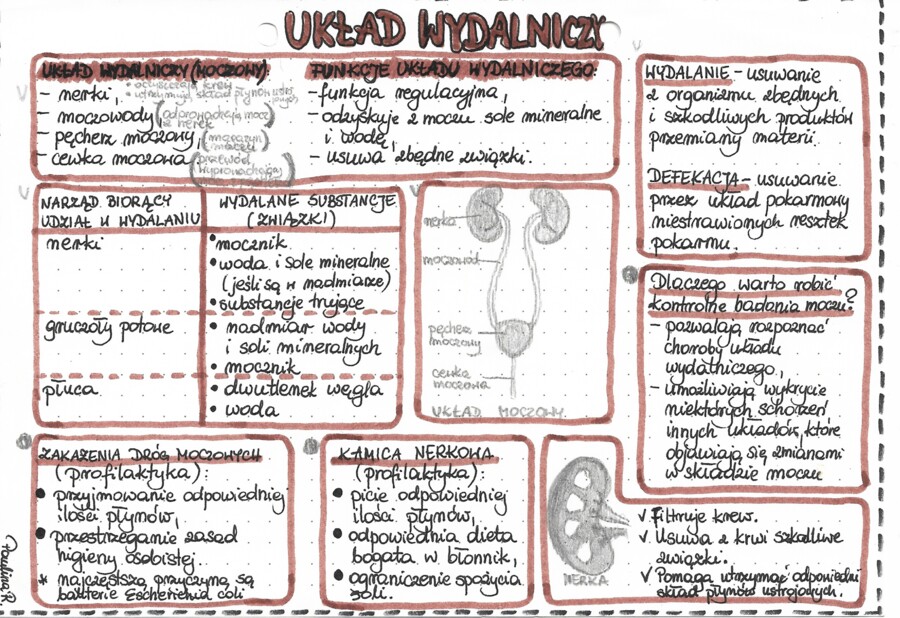 UKŁAD WYDALNICZY
UKŁAD WYDALNICZY (MOCZOWY):
- nerki, • oczyszczają krew
• utrzymują skład płynów ustrojowych
- moczowody (odprowadzają mocz
z nerek)
- pęcherz moczowy, (magazyn
moczu)
- cewka moczowa (przewód
wyprowadzający
FUNKCJE UKŁADU WYDALNICZEGO:
- funkcja regulacyjna,
- odzyskuje z moczu sole mineralne
i wodę,
- usuwa zbędne związki.
WYDALANIE - usuwanie
z organizmu zbędnych
i szkodliwych produktów
przemiany materii.
DEFEKACJA - usuwanie
przez układ pokarmowy
niestrawionych resztek
pokarmu.
NARZĄD BIORĄCY
UDZIAŁ W WYDALANIU
WYDALANE SUBSTANCJE
(ZWIĄZKI)
nerki
• mocznik
• woda i sole mineralne
(jeśli są w nadmiarze)
• substancje trujące
gruczoły potowe
• nadmiar wody
i soli mineralnych
• mocznik
płuca
• dwutlenek węgla
• woda
nerka
moczowód
pęcherz
moczowy
cewka
moczowa
UKŁAD MOCZOWY
Dlaczego warto robić
kontrolne badania moczu?
- pozwalają rozpoznać
choroby układu
wydalniczego,
- umożliwiają wykrycie
niektórych schorzeń
innych układów, które
objawiają się zmianami
w składzie moczu
ZAKAŻENIA DRÓG MOCZOWYCH
(profilaktyka):
• przyjmowanie odpowiedniej
ilości płynów,
• przestrzeganie zasad
higieny osobistej.
* najczęstszą przyczyną są
bakterie Escherichia coli
KAMICA NERKOWA
(profilaktyka):
• picie odpowiedniej
ilości płynów,
• odpowiednia dieta
bogata w błonnik,
• ograniczenie spożycia
soli.
NERKA
√ Filtruje krew.
√ Usuwa z krwi szkodliwe
związki.
√ Pomaga utrzymać odpowiedni
skład płynów ustrojowych.
Paulina R.